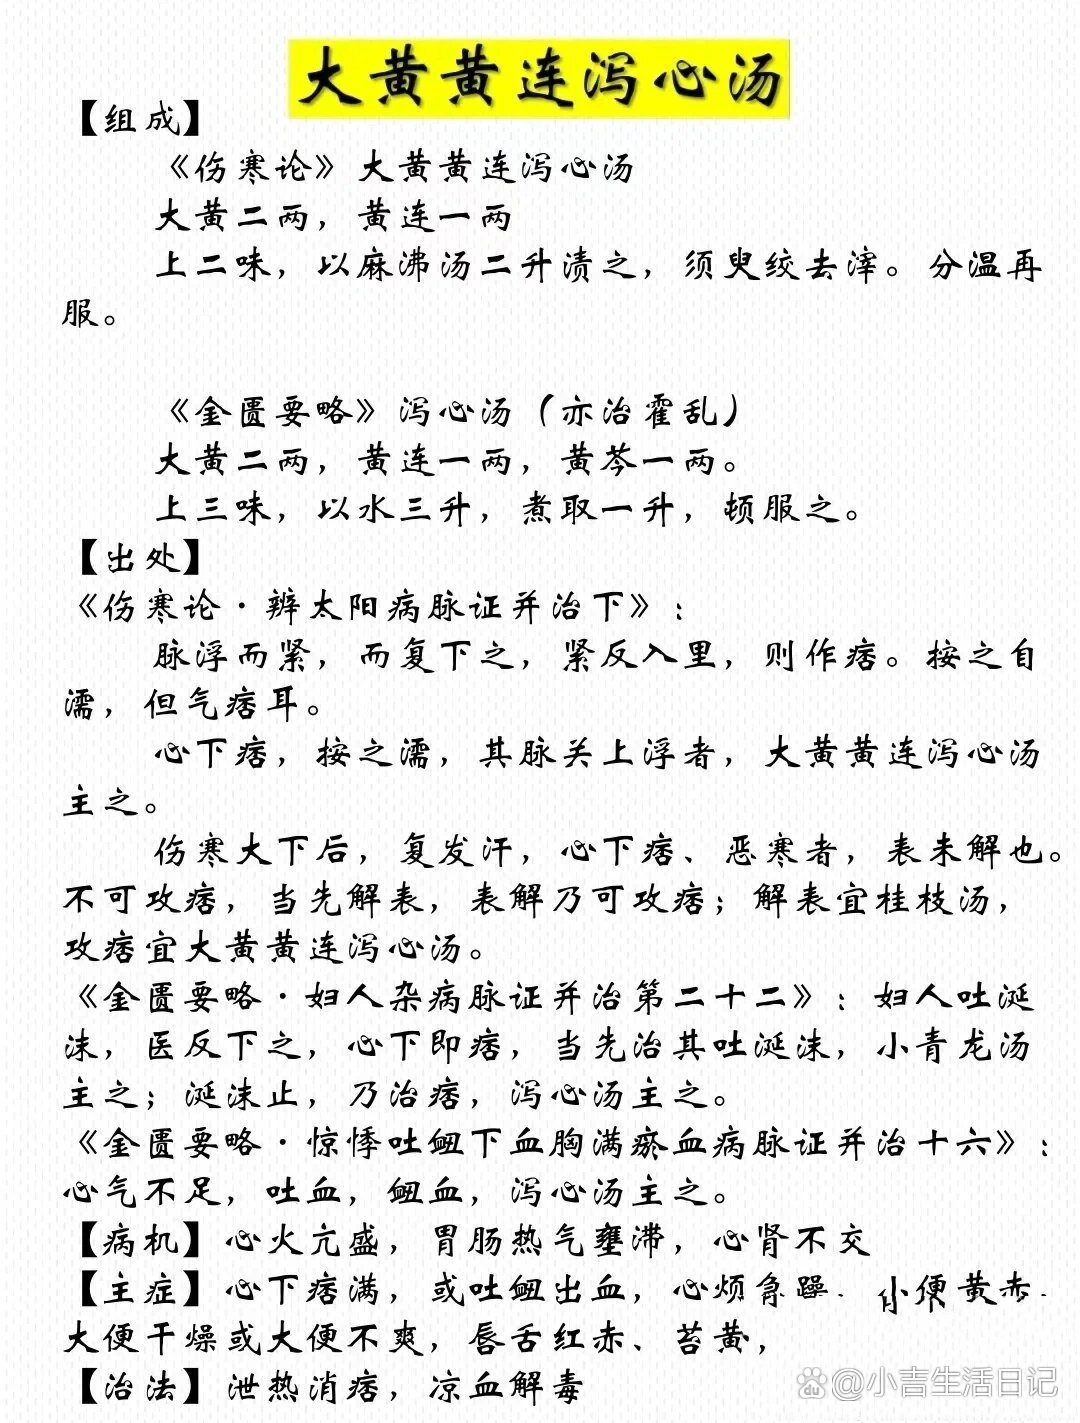 大黄黄连泻心汤
【组成】
《伤寒论》大黄黄连泻心汤
大黄二两，黄连一两
上二味，以麻沸汤二升渍之，须臾绞去滓。分温再
服。
《金匮要略》泻心汤（亦治霍乱）
大黄二两，黄连一两，黄芩一两。
上三味，以水三升，煮取一升，顿服之。
【出处】
《伤寒论·辨太阳病脉证并治下》：
脉浮而紧，而复下之，紧反入里，则作痞。按之自
濡，但气痞耳。
心下痞，按之濡，其脉关上浮者，大黄黄连泻心汤
主之。
伤寒大下后，复发汗，心下痞、恶寒者，表未解也。
不可攻痞，当先解表，表解乃可攻痞；解表宜桂枝汤，
攻痞宜大黄黄连泻心汤。
《金匮要略·妇人杂病脉证并治第二十二》：妇人吐涎
沫，医反下之，心下即痞，当先治其吐涎沫，小青龙汤
主之；涎沫止，乃治痞，泻心汤主之。
《金匮要略·惊悸吐衄下血胸满瘀血病脉证并治十六》：
心气不足，吐血，衄血，泻心汤主之。
【病机】心火亢盛，胃肠热气壅滞，心肾不交
【主症】心下痞满，或吐衄出血，心烦急躁．小便黄赤．
大便干燥或大便不爽，唇舌红赤、苔黄，
【治法】泄热消痞，凉血解毒
@小吉生活日记